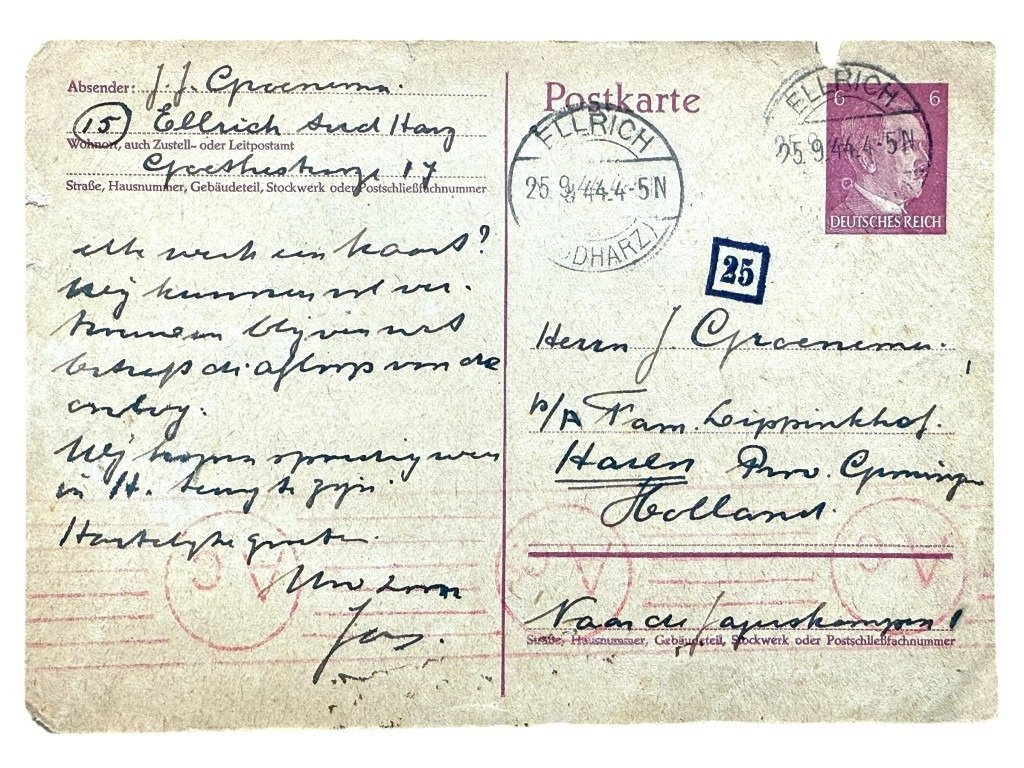 Absender: J. J. Groenema.
(15) Ellrich Sud Harz
Wohnort, auch Zustell- oder Leitpostamt
Goethestrasze 17
Straße, Hausnummer, Gebäudeteil, Stockwerk oder Postschließfachnummer
elke week een kaart?
Wij kunnen vol ver-
trouwen blijven wat
betreft de afloop van de
oorlog.
Wij hopen spoedig weer
in H. terug te zijn.
Hartelijke groeten.
Uw zoon
Postkarte
ELLRICH
25.9.44.4-5N
(SÜDHARZ)
ELLRICH
25.9.44.4-5N
6 6
DEUTSCHES REICH
25
Herrn J. Groenema.
p/A Fam. Lippinkhof.
Haren Prov. Groningen
Holland.
Straße, Hausnummer, Gebäudeteil, Stockwerk oder Postschließfachnummer
Ac
Ac
Ac